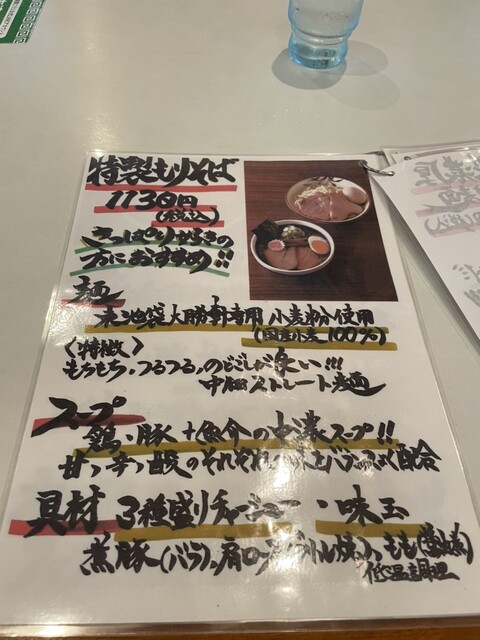 特製もりそば
1130円
(税込)
さっぱり好きの
方におすすめ!!
麺
東池袋大勝軒専用 小麦粉使用
(国産小麦 100%)
〈特徴〉
もちもち、つるつる、のどごしが良い!!!
中細ストレート麺
スープ
鶏・豚+魚介の中濃スープ!!
甘っ辛っ酸っのそれぞれの味をバランスよく配合
具材 3種盛りチャーシュー・味玉
煮豚(バラ)、肩ロース(レトルト焼)、もも(醤油煮)
低温調理